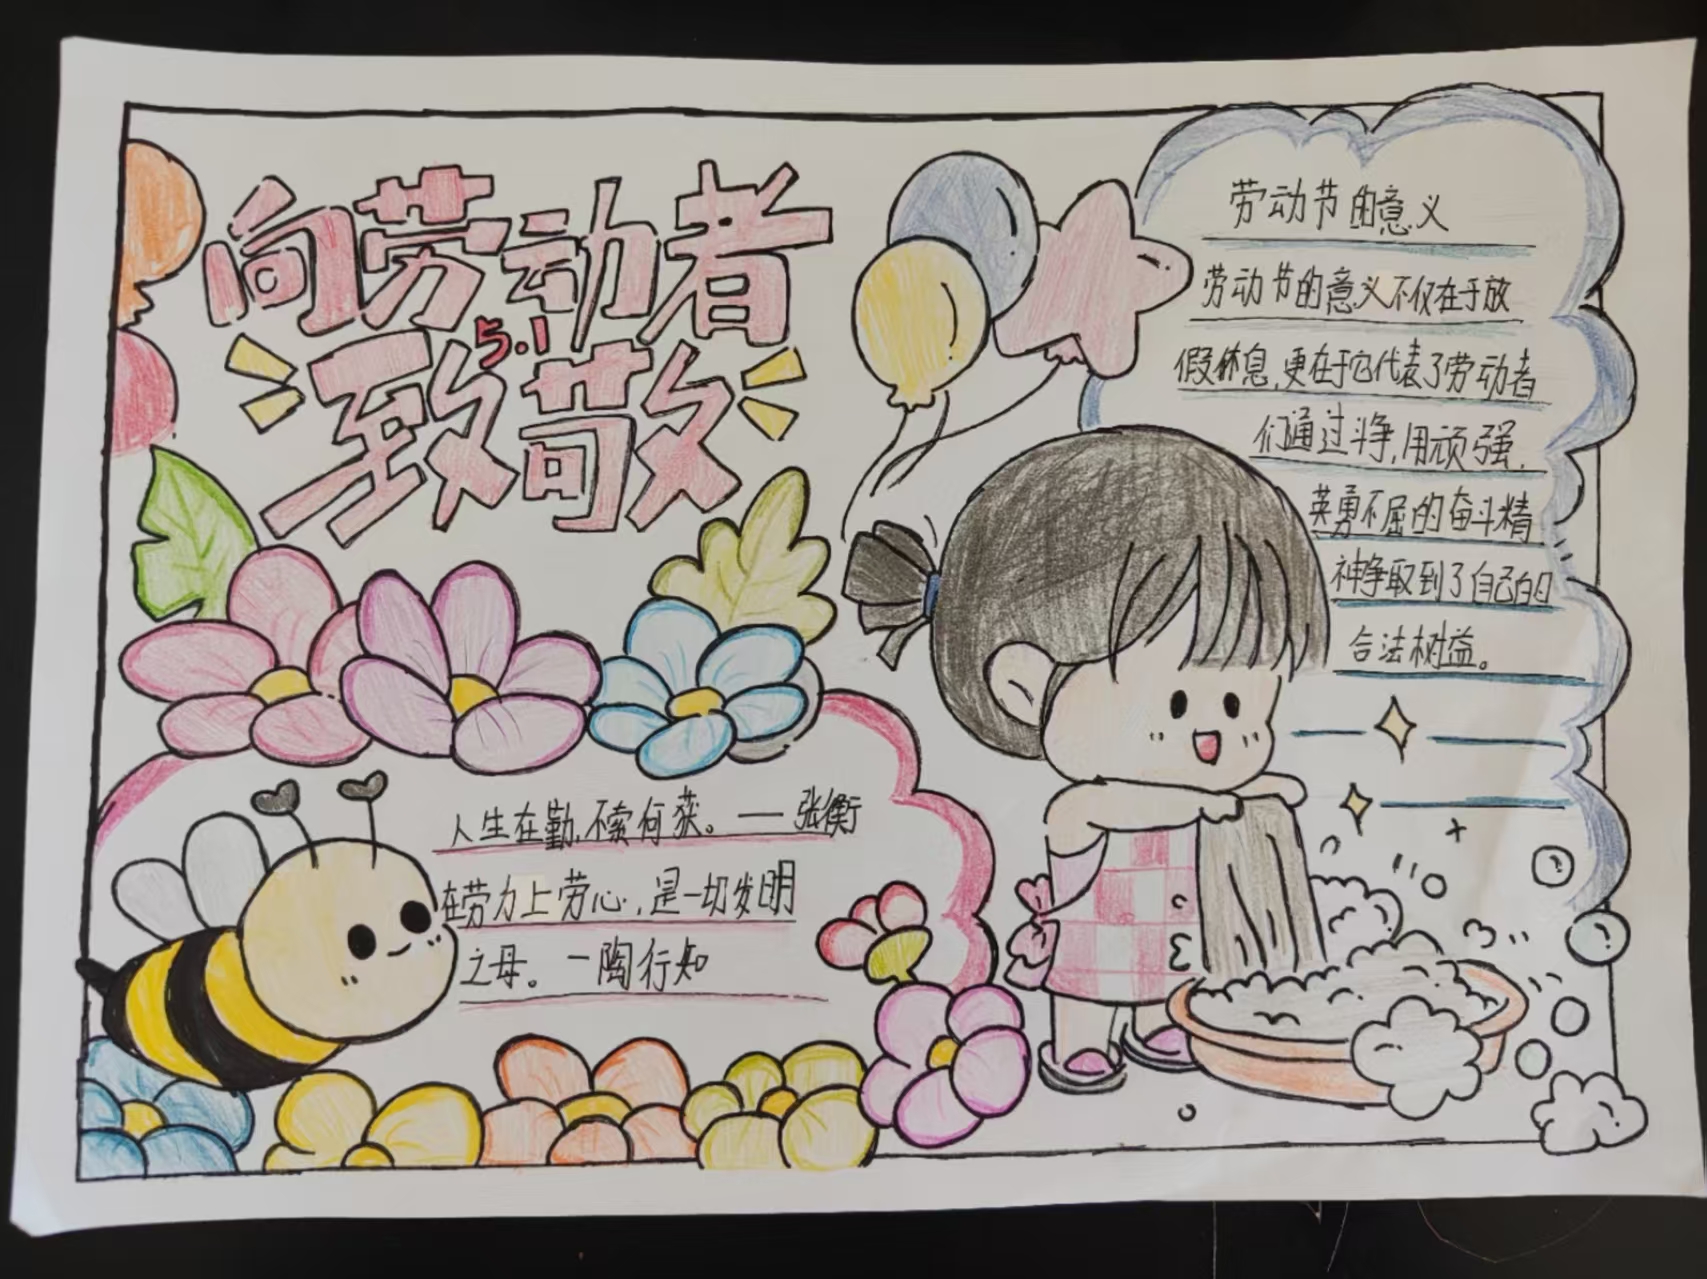 向劳动者
5.1
致敬
劳动节的意义
劳动节的意义不仅在于放
假休息,更在于它代表了劳动者
们通过斗争,用顽强,
英勇不屈的奋斗精
神争取到了自己的
合法树益。
人生在勤,不索何获。——张衡
在劳力上劳心,是一切发明
之母。—陶行知